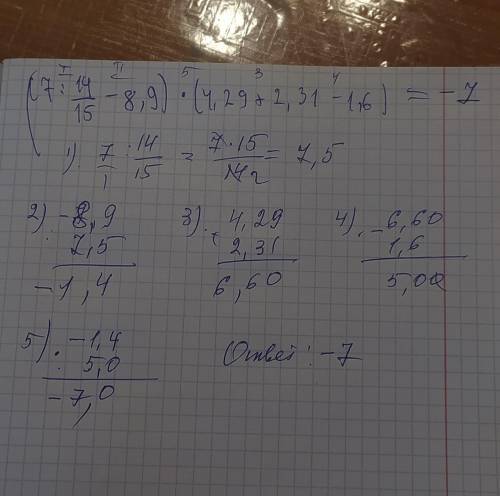 I II 5 3 4
(7 : 14/15 - 8,9) · (4,29 + 2,31 - 1,6) = -7
1). 7/1 : 14/15 = 7·15/14 2 = 7,5
2). - 8,9 3). 4,29 4). - 6,60
7,5 + 2,31 1,6
-1,4 6,60 5,00
5) · -1,4 Ответ: -7
5,0
-7,0